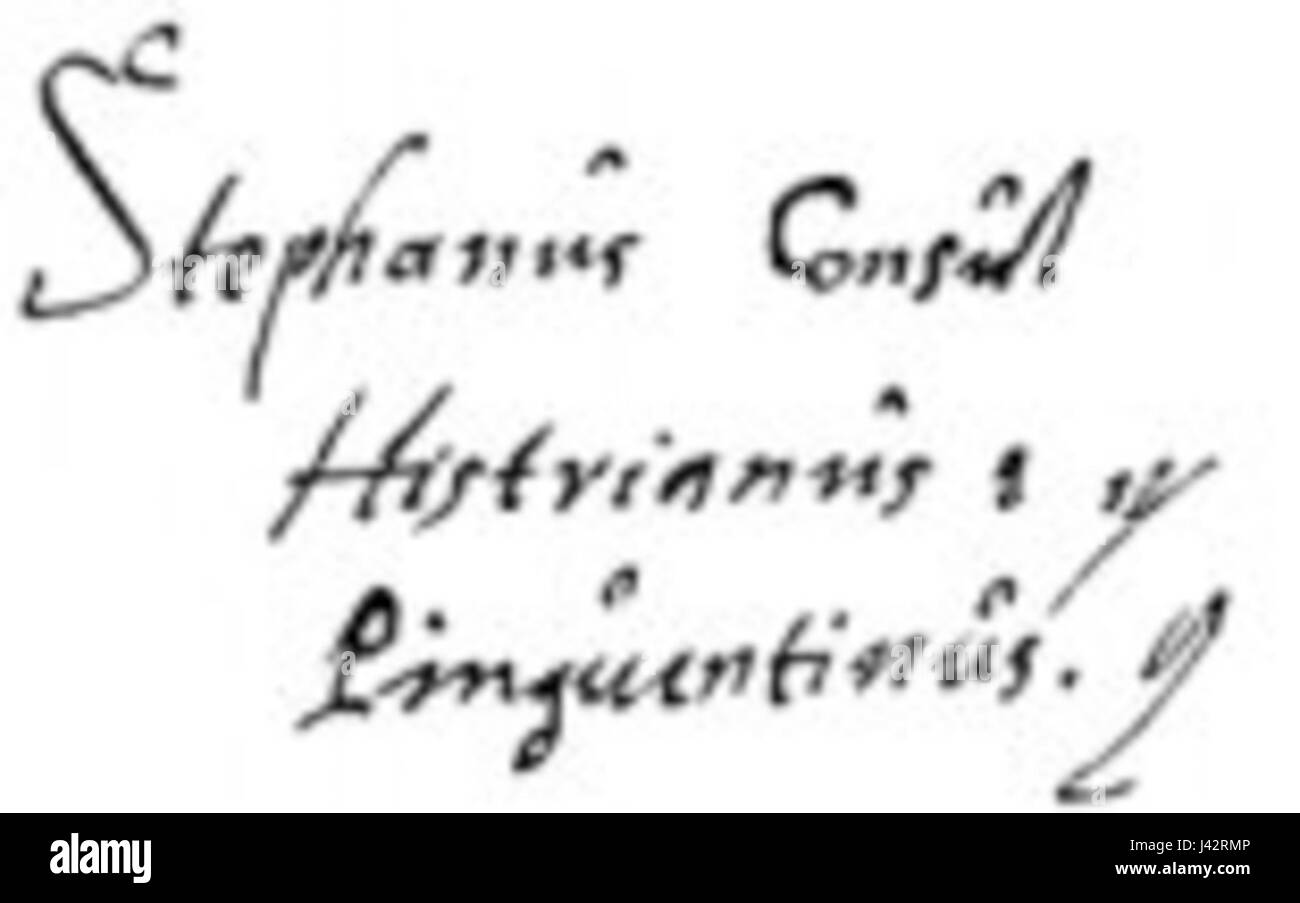 Stephanus Consul
Histrianus
Pinguentinus.
alamy
Image ID: J42RMP
www.alamy.com